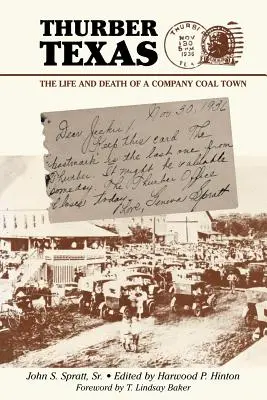 THURBER
TEXAS
THURBER
NOV
30
5 PM
1936
TEX.
THE LIFE AND DEATH OF A COMPANY COAL TOWN
Nov 30, 1936
Dear Jackie,
Keep this card. The
postmark is the last one from
Thurber. It might be valuable
someday. The Thurber Office
closes today.
Love, Geneva Spratt
John S. Spratt, Sr. • Edited by Harwood P. Hinton
Foreword by T. Lindsay Baker